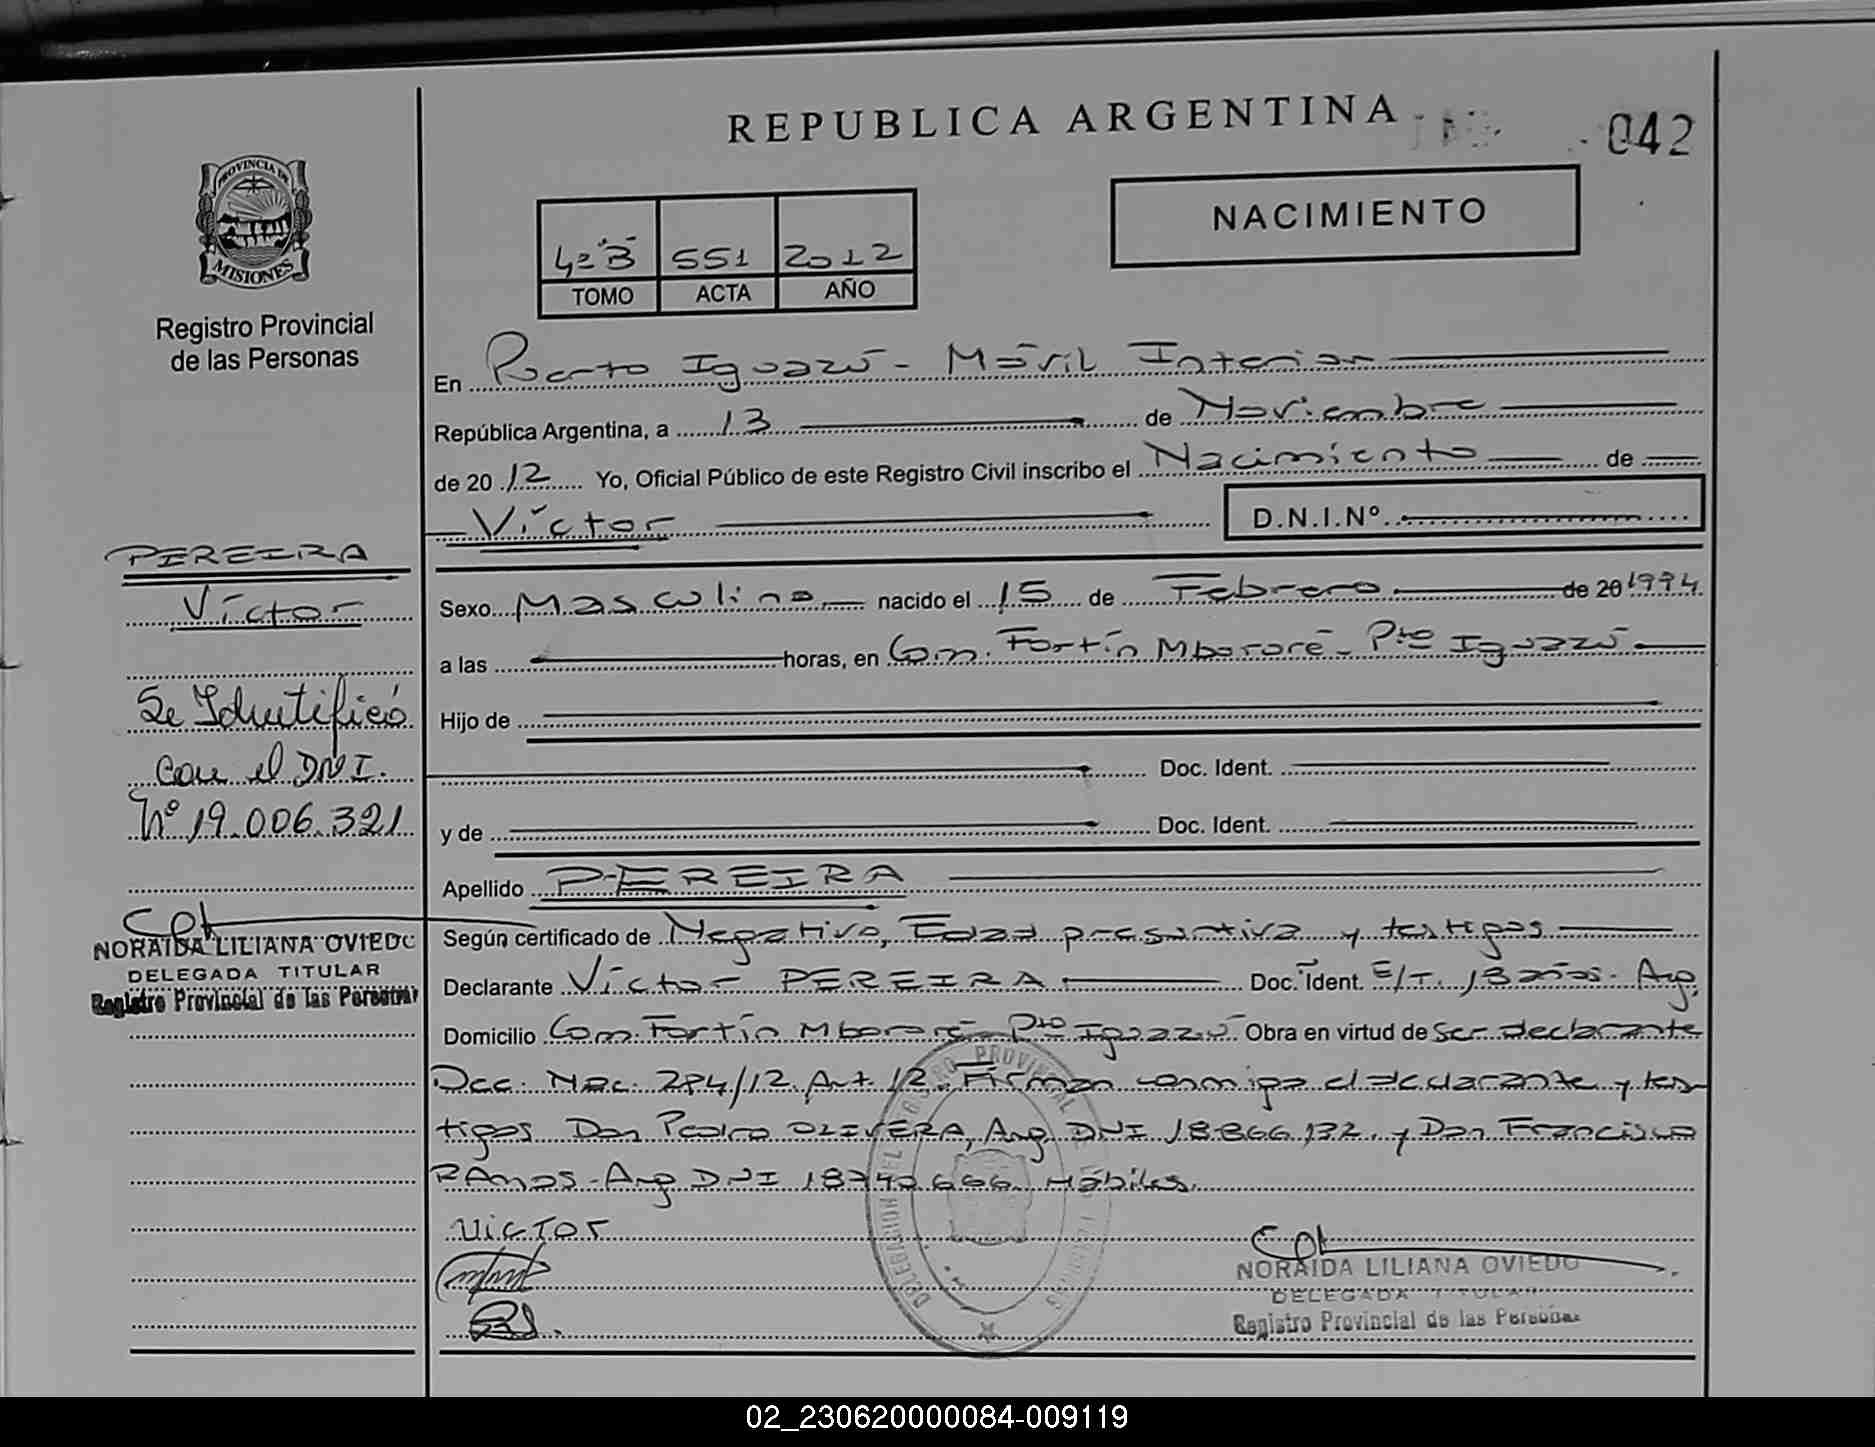 REPUBLICA ARGENTINA
042
PROVINCIA DE
MISIONES
Registro Provincial
de las Personas
NACIMIENTO
4º"B" 551 2012
TOMO ACTA AÑO
En Puerto Iguazú - Móvil Interior
República Argentina, a 13 de Noviembre
de 2012 Yo, Oficial Público de este Registro Civil inscribo el Nacimiento de
Víctor D.N.I.Nº
PEREIRA
Víctor
Se Identificó
con el DNI.
Nº 19.006.321
NORAIDA LILIANA OVIEDO
DELEGADA TITULAR
Registro Provincial de las Personas
Sexo Masculino nacido el 15 de Febrero de 20 1994.
a las horas, en Com. Fortín Mbororé - Pto Iguazú
Hijo de
Doc. Ident.
y de Doc. Ident.
Apellido PEREIRA
Según certificado de Negativo, Edad presuntiva y testigos
Declarante Víctor PEREIRA Doc. Ident. E/T. 18 años - Arg.
Domicilio Com. Fortín Mbororé - Pto Iguazú Obra en virtud de Ser declarante
Dec. Nac. 284/12. Art. 12. Firman conmigo el declarante y tes-
tigos Don Pedro OLIVERA, Arg. DNI 18.866.132. y Don Francisco
RAMOS - Arg DNI Hábiles.
VICTOR
NORAIDA LILIANA OVIEDO
DELEGADA TITULAR
Registro Provincial de las Personas
02_230620000084-009119